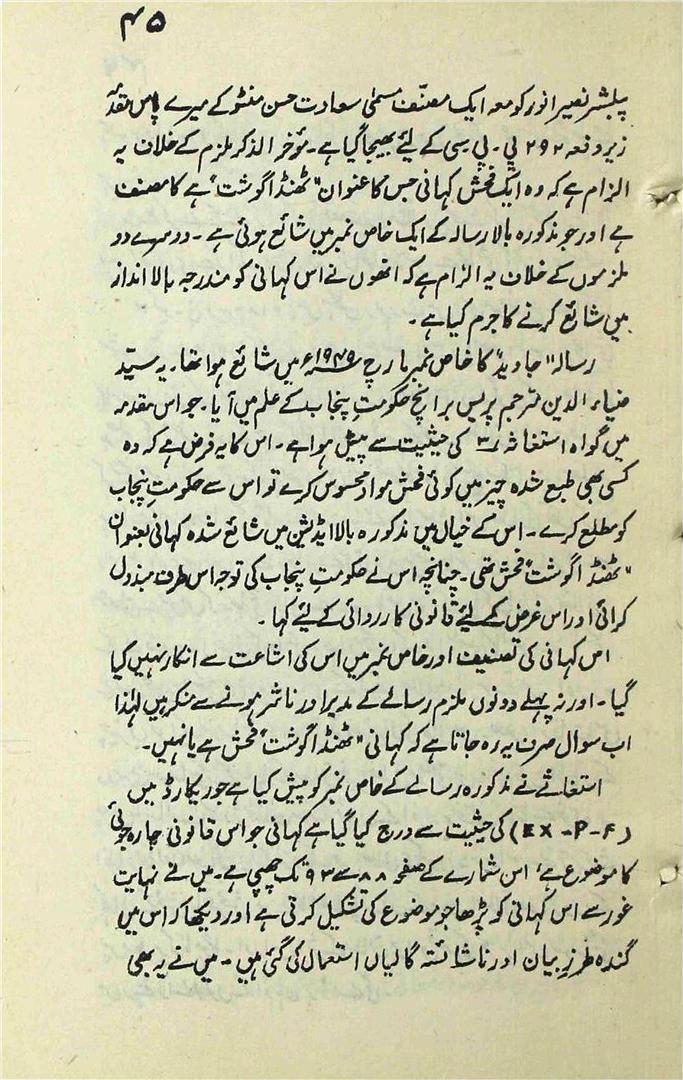 ۴۵
پبلشر نصیر انور کو معہ ایک مصنّف مسمیٰ سعادت حسن منٹو کے میرے پاس مقدمہ
زیر دفعہ ۲۹۲ پی۔ پی۔ سی کے لئے بھیجا گیا ہے۔ مؤخر الذکر ملزم کے خلاف یہ
الزام ہے کہ وہ ایک فحش کہانی جس کا عنوان "ٹھنڈا گوشت" ہے کا مصنف
ہے اور جو مذکورہ بالا رسالہ کے ایک خاص نمبر میں شائع ہوئی ہے۔ دوسرے دو
ملزموں کے خلاف یہ الزام ہے کہ انھوں نے اس کہانی کو مندرجہ بالا انداز
میں شائع کرنے کا جرم کیا ہے۔
رسالہ "جاوید" کا خاص نمبر مارچ ۱۹۴۹ء میں شائع ہوا تھا۔ یہ سیّد
ضیاء الدین مترجم پریس برانچ حکومتِ پنجاب کے علم میں آیا۔ جو اس مقدمہ
میں گواہ استغاثہ ۳ کی حیثیت سے پیش ہوا ہے۔ اس کا یہ فرض ہے کہ وہ
کسی بھی طبع شدہ چیز میں کوئی فحش مواد محسوس کرے تو اس سے حکومتِ پنجاب
کو مطلع کرے۔ اس کے خیال میں مذکورہ بالا ایڈیشن میں شائع شدہ کہانی بعنوان
"ٹھنڈا گوشت" فحش تھی۔ چنانچہ اس نے حکومتِ پنجاب کی توجہ اس طرف مبذول
کرائی اور اس غرض کے لئے قانونی کارروائی کے لئے کہا۔
اس کہانی کی تصنیف اور خاص نمبر میں اس کی اشاعت سے انکار نہیں کیا
گیا۔ اور نہ پہلے دونوں ملزم رسالے کے مدیر اور ناشر ہونے سے منکر ہیں لہٰذا
اب سوال صرف یہ رہ جاتا ہے کہ کہانی "ٹھنڈا گوشت" فحش ہے یا نہیں۔
استغاثے نے مذکورہ رسالے کے خاص نمبر کو پیش کیا ہے جو ریکارڈ میں
(EX-P-F) کی حیثیت سے درج کیا گیا ہے کہانی جو اس قانونی چارہ جوئی
کا موضوع ہے، اس شمارے کے صفحہ ۸۸ سے ۹۳ تک چھپی ہے۔ میں نے نہایت
غور سے اس کہانی کو پڑھا جو موضوع کی تشکیل کرتی ہے اور دیکھا کہ اس میں
گندہ طرزِ بیان اور ناشائستہ گالیاں استعمال کی گئی ہیں۔ میں نے یہ بھی